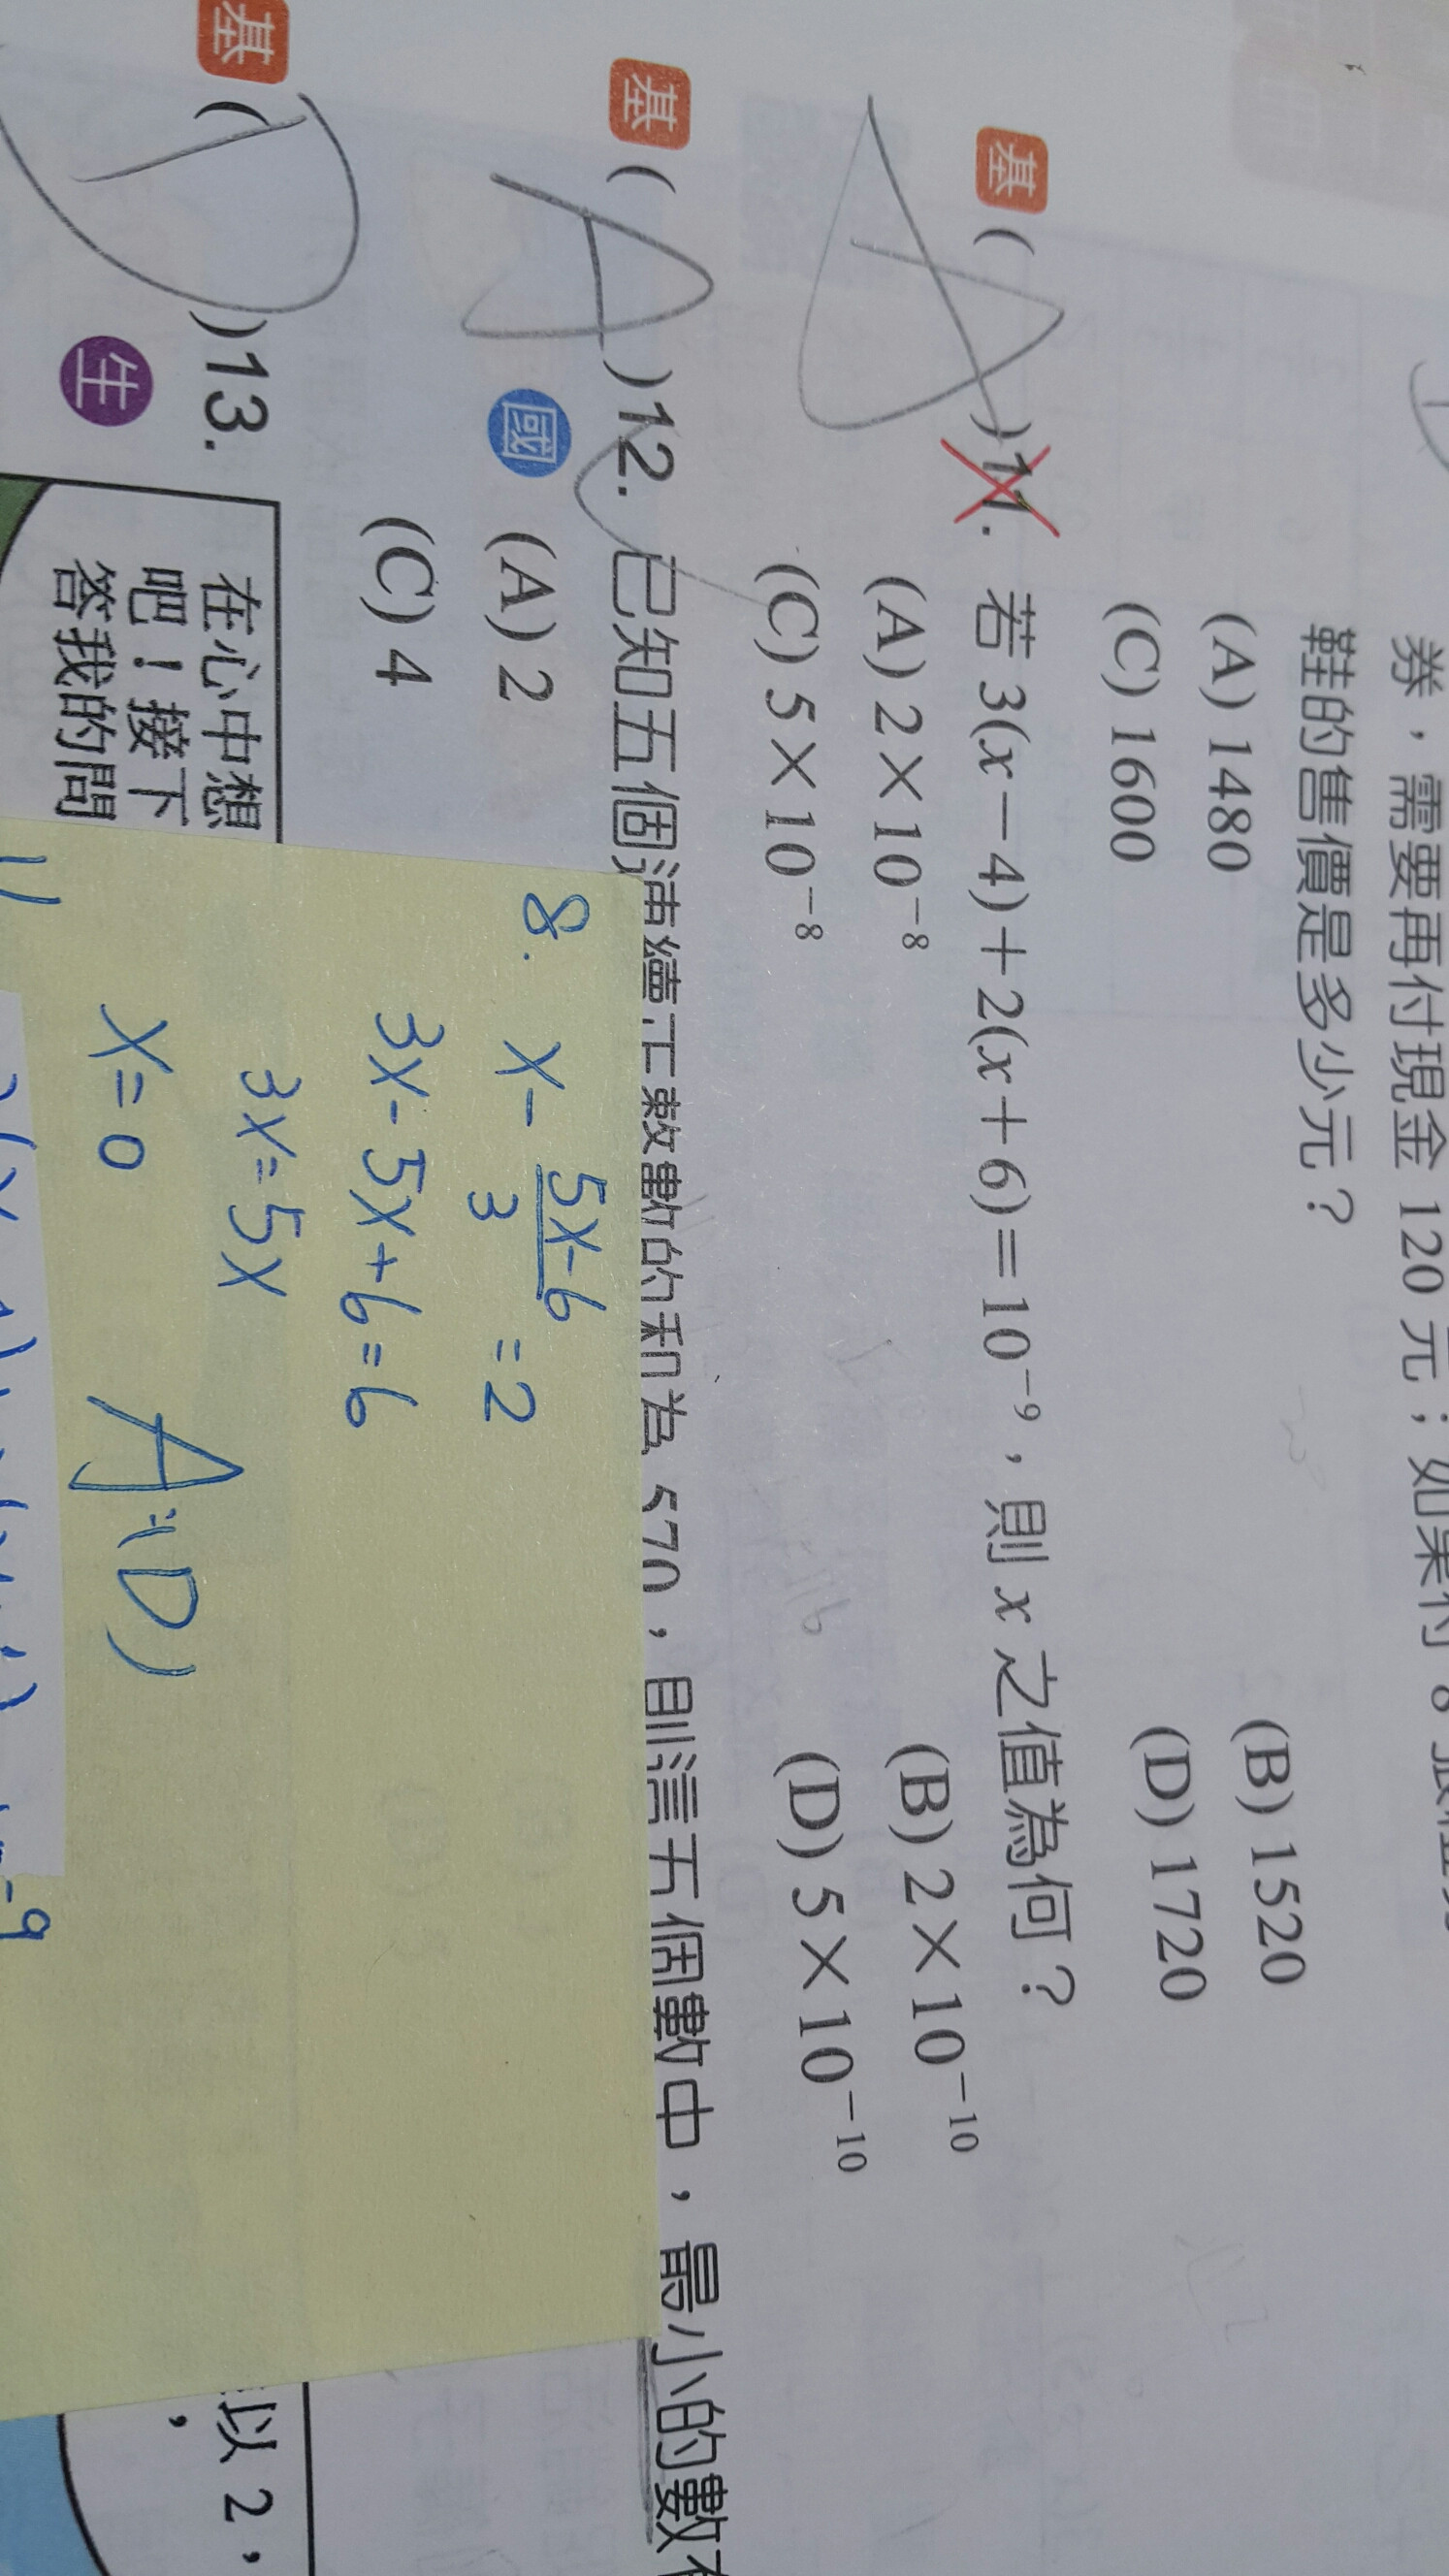 券，需要再付現金 120 元；如果付 8 張
鞋的售價是多少元？
(A) 1480 (B) 1520
(C) 1600 (D) 1720
基 ( A ) 11. 若 3(x－4)＋2(x＋6)＝10⁻⁹，則 x 之值為何？
(A) 2×10⁻⁸ (B) 2×10⁻¹⁰
(C) 5×10⁻⁸ (D) 5×10⁻¹⁰
基 ( A ) 12. 已知五個連續正整數的和為 570，則這五個數中，最小的數有
國 (A) 2
(C) 4
8. x - (5x-6)/3 = 2
3x - 5x + 6 = 6
3x = 5x
x = 0 A:(D)
基 ( D ) 13. 在心中想
生 吧！接下
答我的問
以 2，
，
11
-9